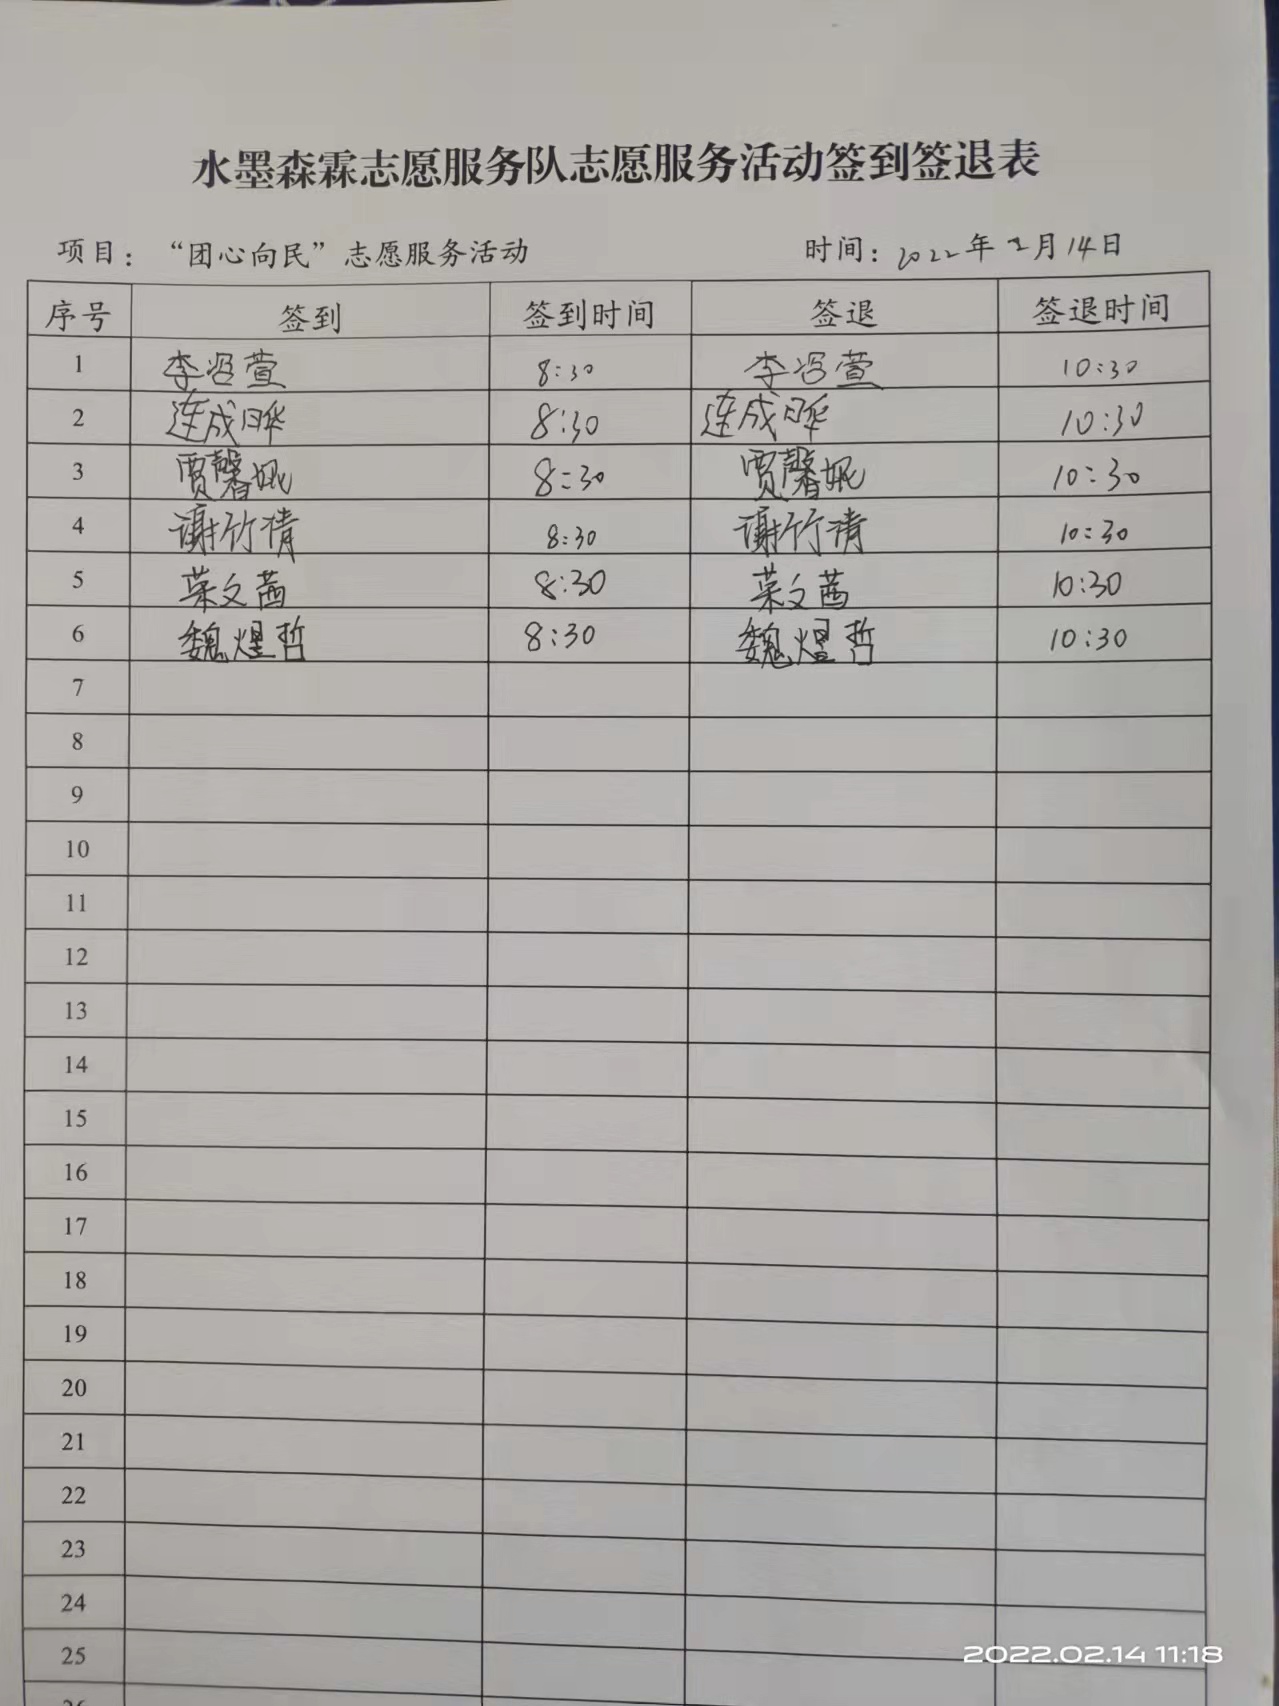 水墨森霖志愿服务队志愿服务活动签到签退表
项目：“团心向民”志愿服务活动 时间：2022年2月14日
序号 签到 签到时间 签退 签退时间
1 李冾萱 8:30 李冾萱 10:30
2 连成晔 8:30 连成晔 10:30
3 贾馨妮 8:30 贾馨妮 10:30
4 谢竹倩 8:30 谢竹倩 10:30
5 荣文茜 8:30 荣文茜 10:30
6 魏煜哲 8:30 魏煜哲 10:30
7
8
9
10
11
12
13
14
15
16
17
18
19
20
21
22
23
24
25
26
2022.02.14 11:18